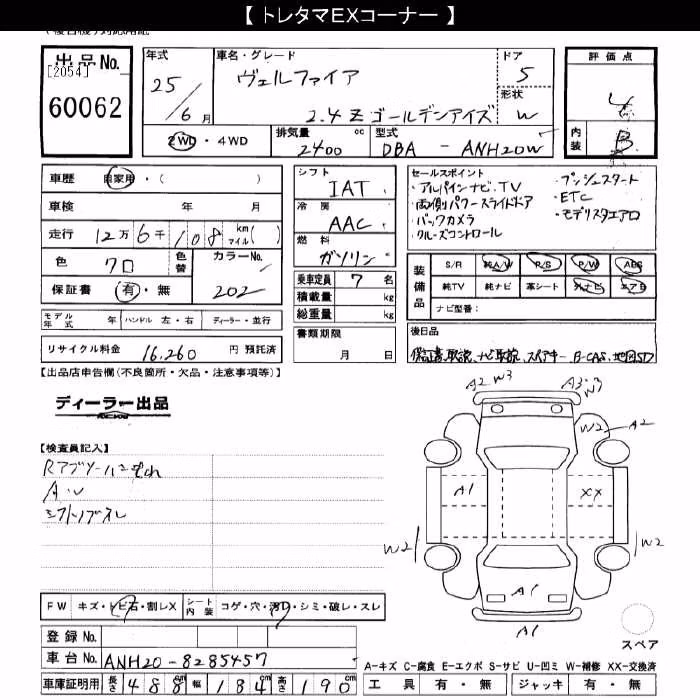 【 トレタマEXコーナー 】
出品No.
[2054]
60062
年式
25/6 月
車名・グレード
ヴェルファイア
2.4 Z ゴールデンアイズ
ドア
5
形状
W
2WD・4WD
排気量
cc
2400
型式
DBA - ANH20W
評価点
4
内装
B
車歴
自家用・( )
車検
年 月
走行
12万 6千 108 km マイル( )
色
クロ
色替
カラーNo.
202
保証書
有・無
モデル年式
年
ハンドル 左・右
ディーラー・並行
リサイクル料金
16,260
円 預託済
シフト
IAT
冷房
AAC
燃料
ガソリン
乗車定員
7 名
積載量
kg
総重量
kg
書類期限
月 日
セールスポイント
・アルパインナビ.TV
・両側パワースライドドア
・バックカメラ
・クルーズコントロール
・プッシュスタート
・ETC
・モデリスタエアロ
装備品
S/R 純A/W P/S P/W ABS
純TV 純ナビ 革シート 外ナビ エアB
ナビ型番：
後日品
保証書、取説、ナビ取説、スペアキー B-CAS、地図SD
【出品店申告欄(不良箇所・欠品・注意事項等)】
ディーラー出品
【検査員記入】
A・W
FW
キズ・トビ石・割レX
シート内装
コゲ・穴・汚レ・シミ・破レ・スレ
登録No.
車台No.
ANH20-8285457
車庫証明用
長さ
488 cm
幅
184 cm
高さ
190 cm
A2 W3
A3 W3
W2
A2
A1
XX
W2
W2
A1
A1
スペア
A-キズ C-腐食 E-エクボ S-サビ U-凹ミ W-補修 XX-交換済
工具
有・無
ジャッキ
有・無